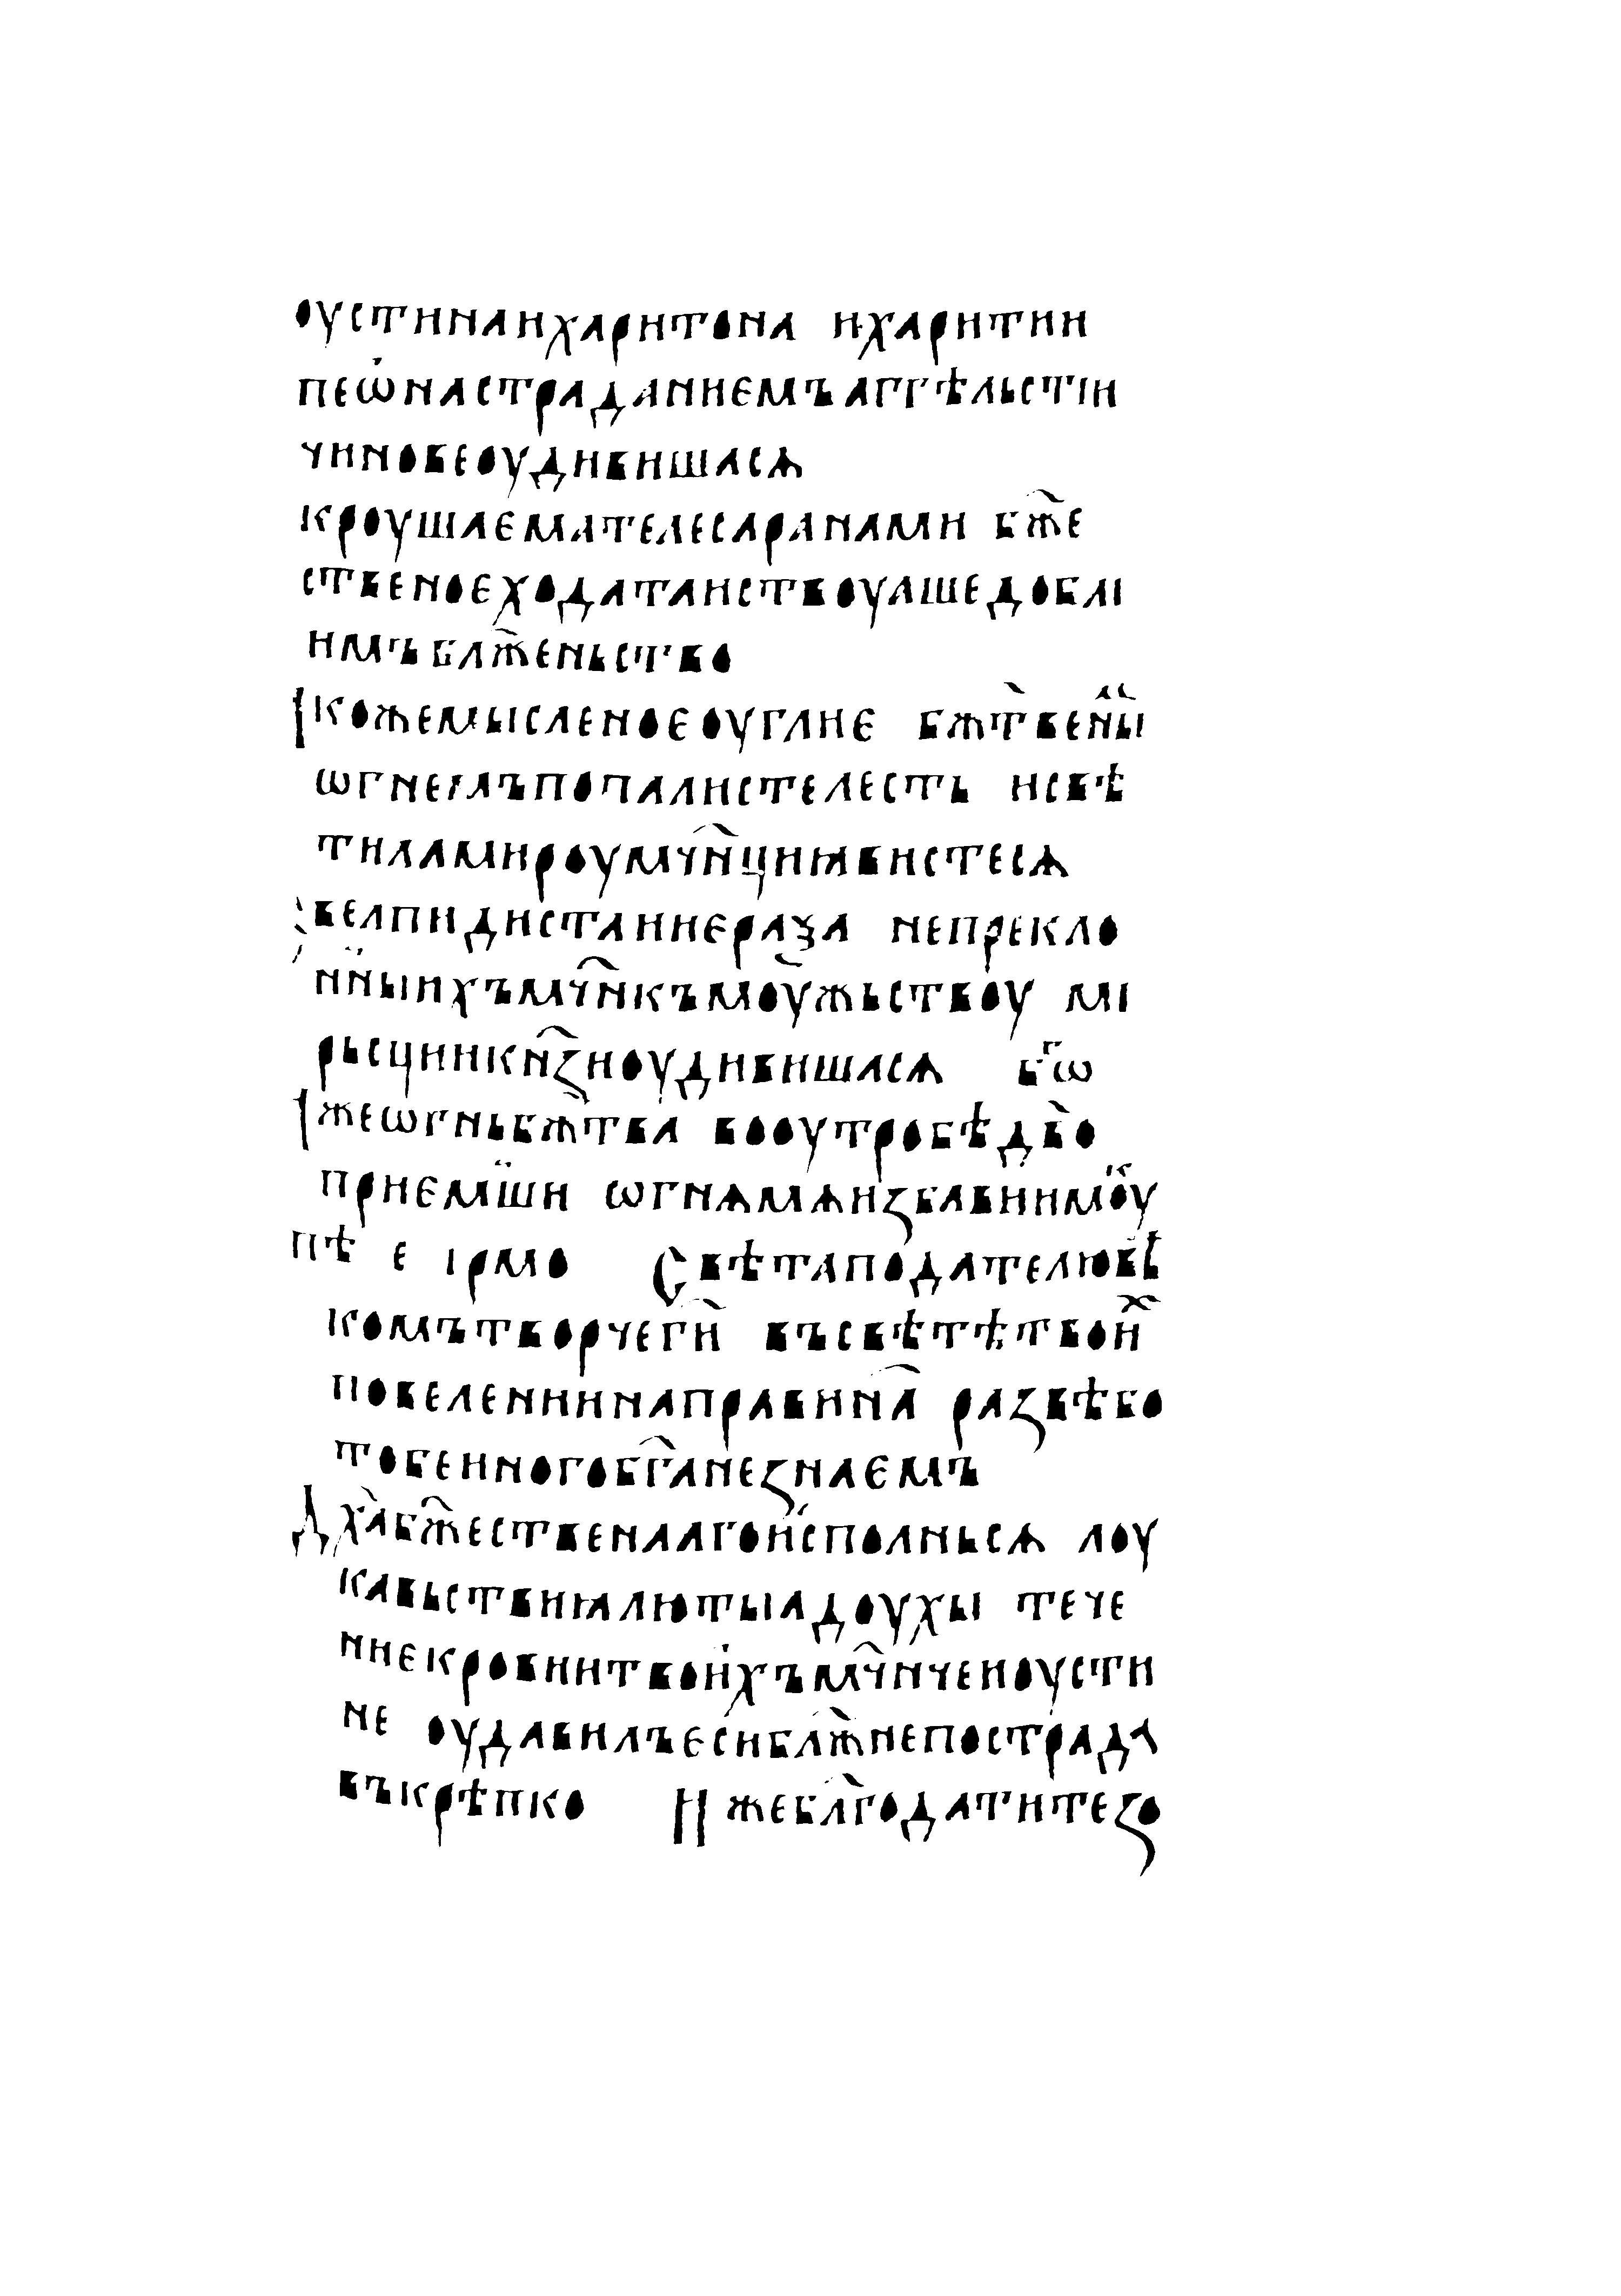 оустинаихаритона ихаритии
пеѡ̇настраданиємъаггѣльстїи
чиновеоудивишасѧ
кроушаєматєлесаранами бж҃е
ственоєходатаиствоуашедоблі
имъблж҃еньство
Ікожемысленоєоуглиє бжт҃вены
ѡгнемъпопалистелесть исвѣ
тиламироумчн҃циꙗвистесѧ
велпидистаиниєраꙁа непрекло
нныихъмч҃нкъмоужьствоу мі
рьсциикн҃ꙁиоудивишасѧ б҃гѡ
Іжеѡгньбж҃тва вооутробѣдв҃о
приємши ѡгнѧмѧиꙁбавиимоу
пѣ е ірмо Свѣтаподателювѣ
комътворчеги҃ въсвѣтѣтвои҃х
повелениинаправина҃ раꙁвѣбо
тобеиногобг҃анеꙁнаємъ
Дх҃абж҃ественаагоисполньсѧ лоу
кавьствиꙗлютыадоухы тече
ниєкровиитвоихъмч҃ничеиоусти
не оудавилъєсиблж҃непострада
въкрѣпко Ижебл҃годатитеꙁо